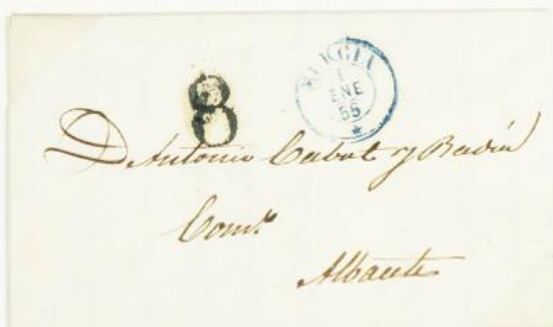 8
1
ENE
55
D. Antonio Cabot y Badía
Com.te
Albacete